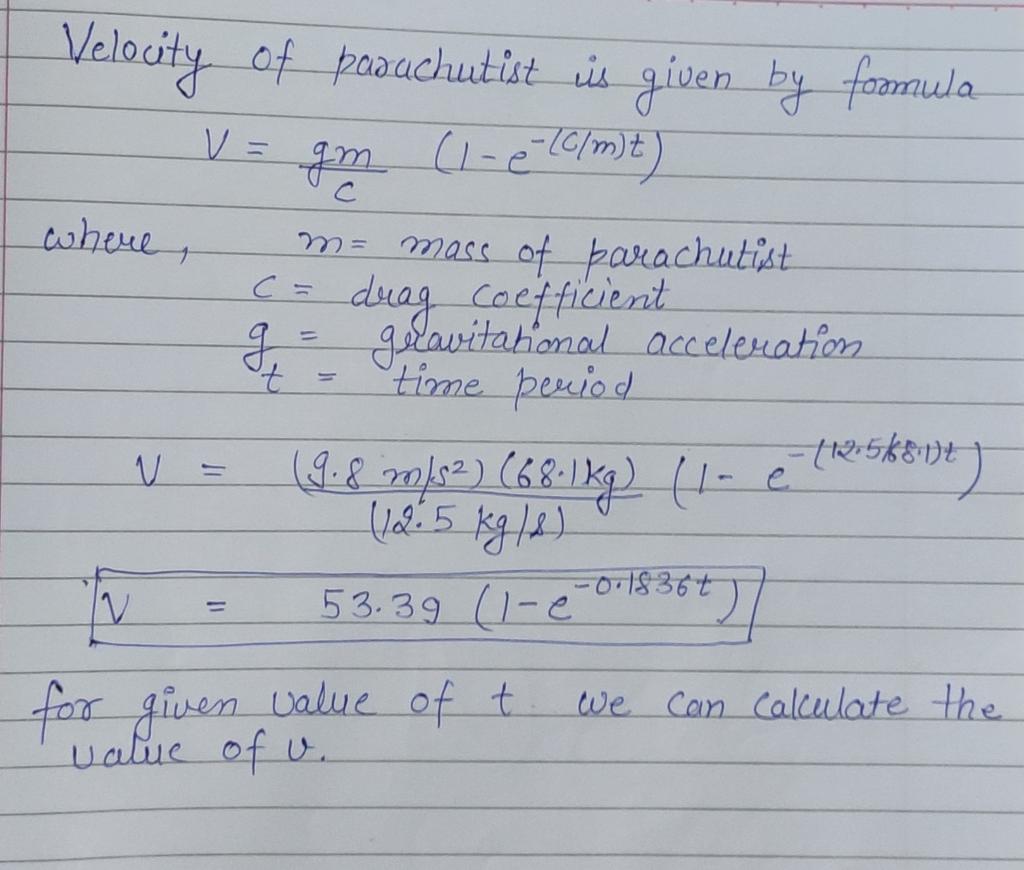 Velocity of parachutist is given by formula
V = gm/c (1-e^-(c/m)t)
where, m = mass of parachutist
c = drag coefficient
g = gravitational acceleration
t = time period
V = (9.8 m/s²) (68.1 kg) / (12.5 kg/s) (1- e^-(12.5/68.1)t)
V = 53.39 (1-e^-0.1836t)
for given value of t we can calculate the
value of v.